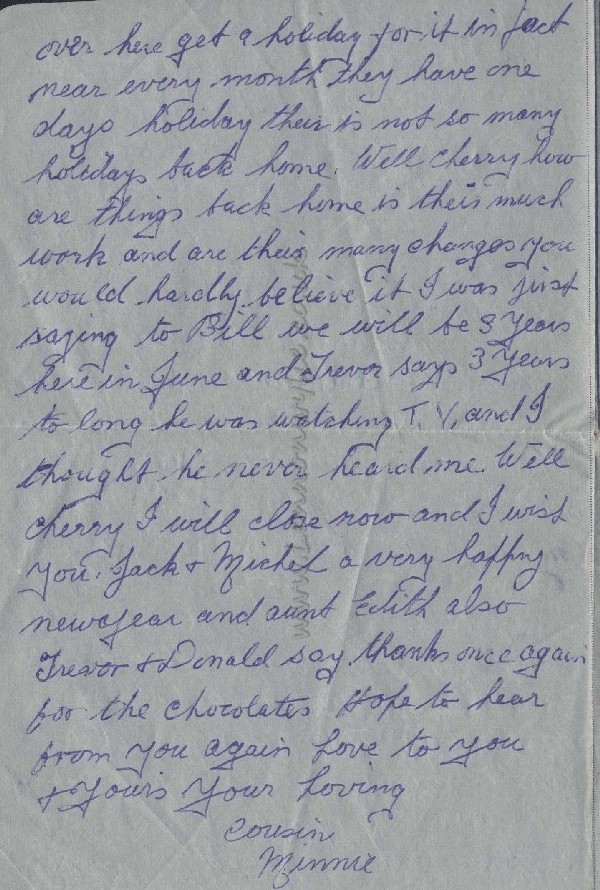 over here get a holiday for it in fact
near every month they have one
days holiday their is not so many
holidays back home. Well cherry how
are things back home is their much
work and are their many changes you
would hardly believe it I was just
saying to Bill we will be 3 years
here in June and Trevor says 3 years
to long he was watching T.V. and I
thought he never heard me. Well
cherry I will close now and I wish
you, Jack + Michel a very happy
newyear and aunt Edith also
Trevor + Donald say thanks once again
for the chocolates Hope to hear
from you again Love to you
+ yours Your Loving
Cousin
Minnie